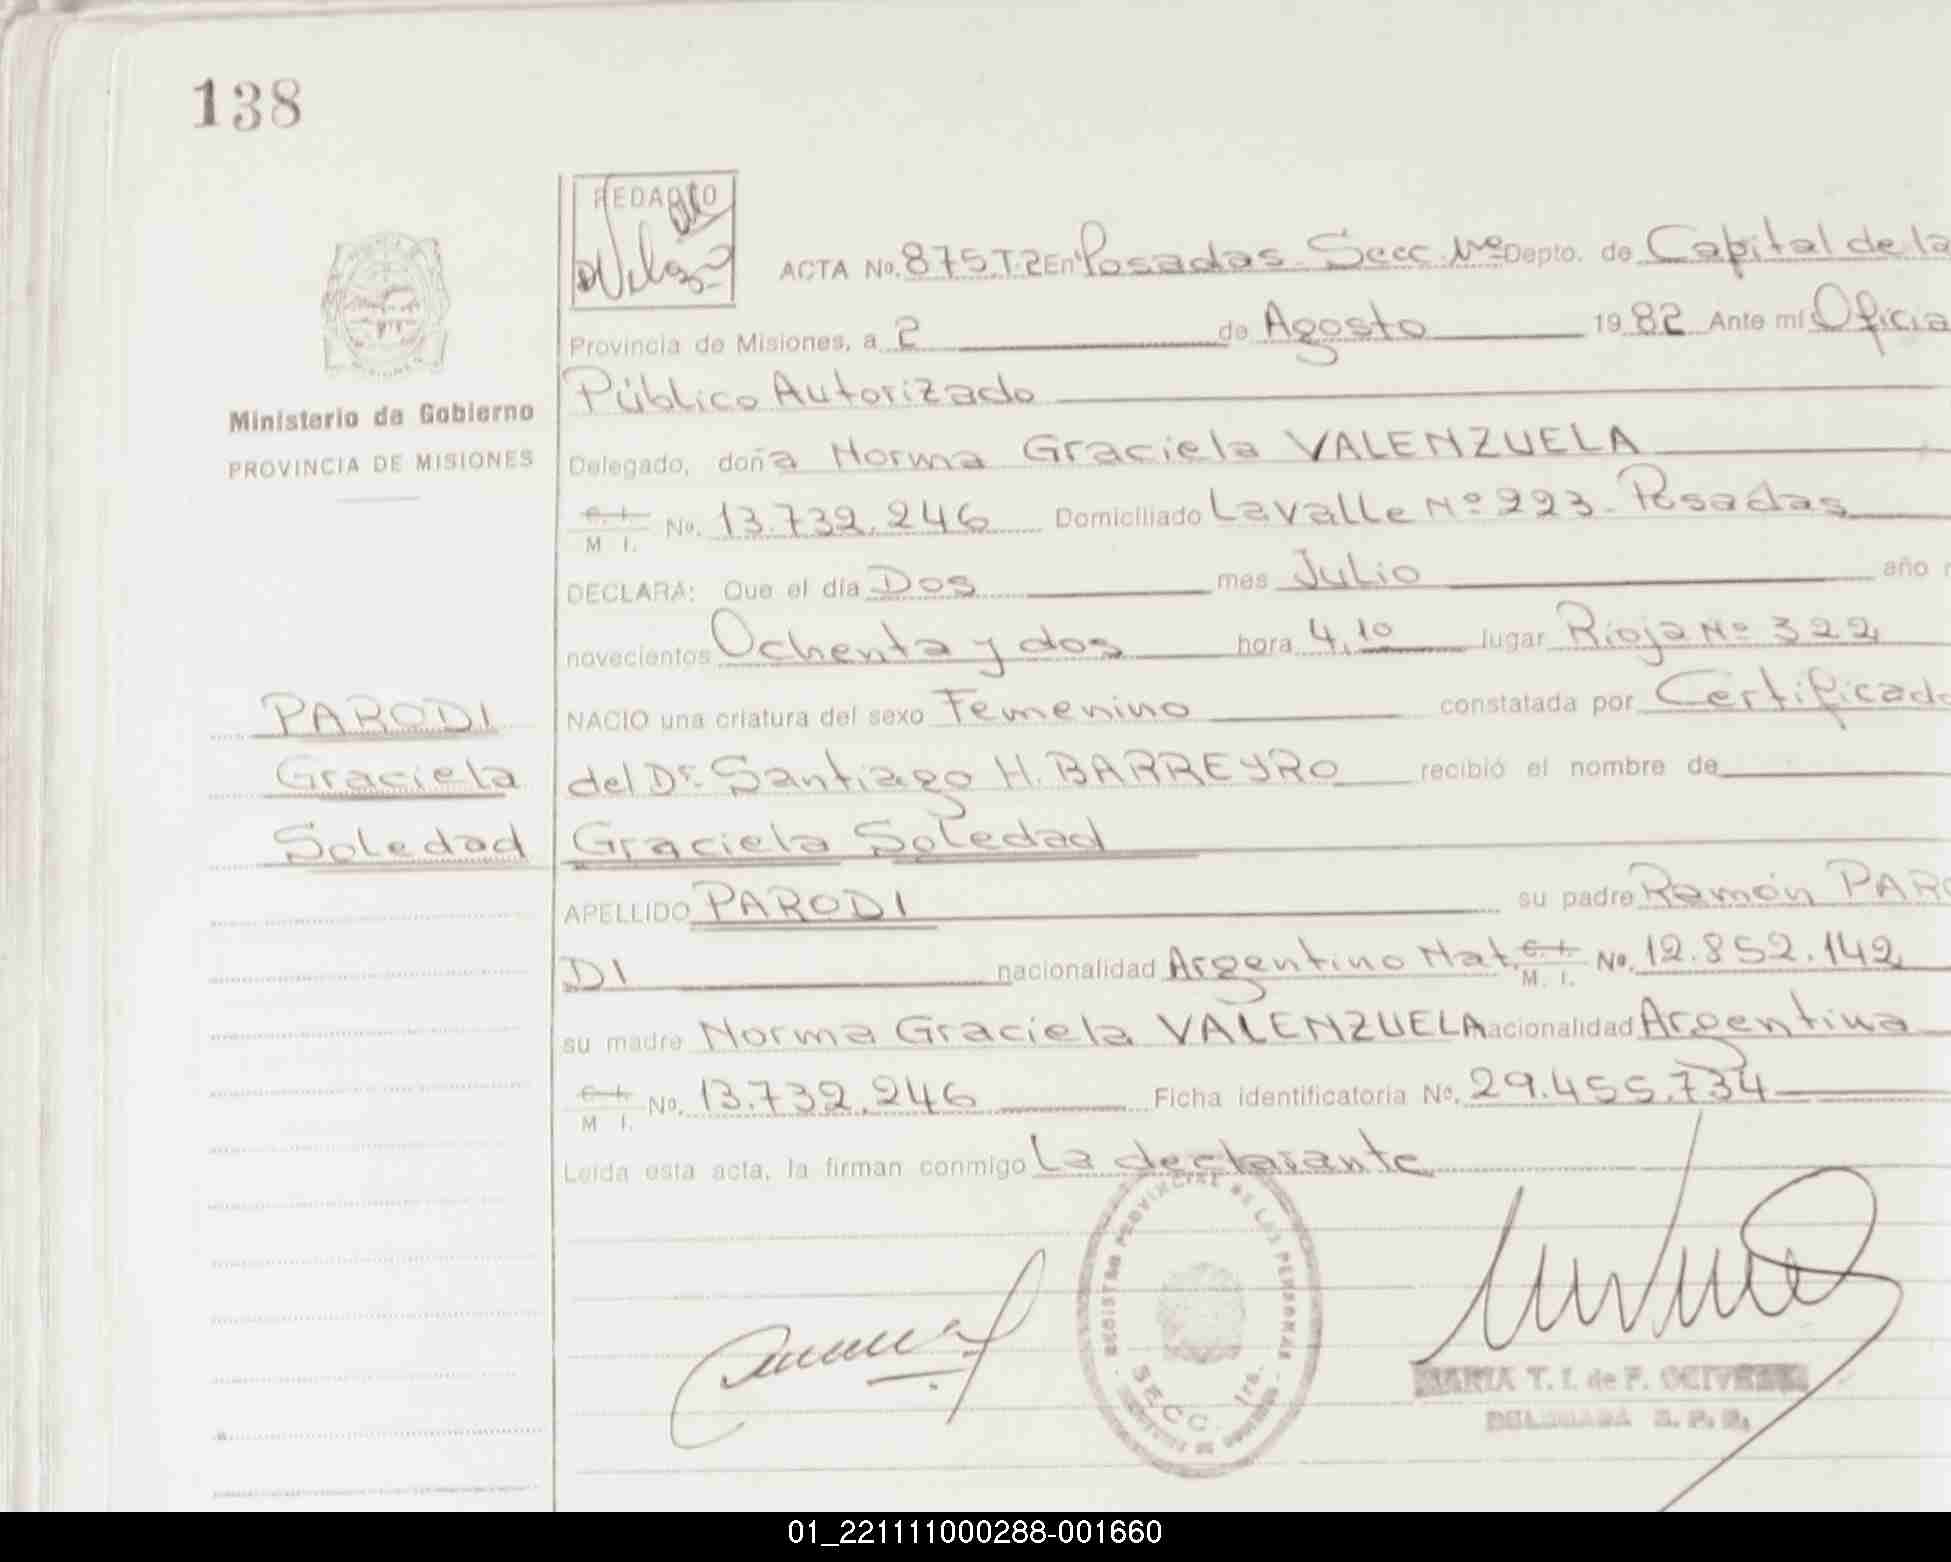 138
REDACTO
ACTA No. 875 T.2 En Posadas Secc. Depto. de Capital de la
Provincia de Misiones, a 2 de Agosto 1982 Ante mí Oficia
Público Autorizado
Ministerio de Gobierno
PROVINCIA DE MISIONES
Delegado, doña Norma Graciela VALENZUELA
C. I. M I. No. 13.732.246 Domiciliado Lavalle Nº 223. Posadas
DECLARA: Que el día Dos mes Julio año
novecientos Ochenta y dos hora 4,10 lugar Rioja Nº 322
PARODI
Graciela
Soledad
NACIO una criatura del sexo Femenino constatada por Certificado
del Dr. Santiago H. BARREYRO recibió el nombre de
Graciela Soledad
APELLIDO PARODI su padre Ramón PARO
DI nacionalidad Argentino Nat. C. I. M. I. No. 12.852.142
su madre Norma Graciela VALENZUELA nacionalidad Argentina
C. I. M I. No. 13.732.246 Ficha identificatoria No. 29.455.734
Leída esta acta, la firman conmigo La declarante
REGISTRO PROVINCIAL DE LAS PERSONAS
SECC. 1ra.
MARIA T. I. de F.
DELEGADA R. P. P.
01_221111000288-001660